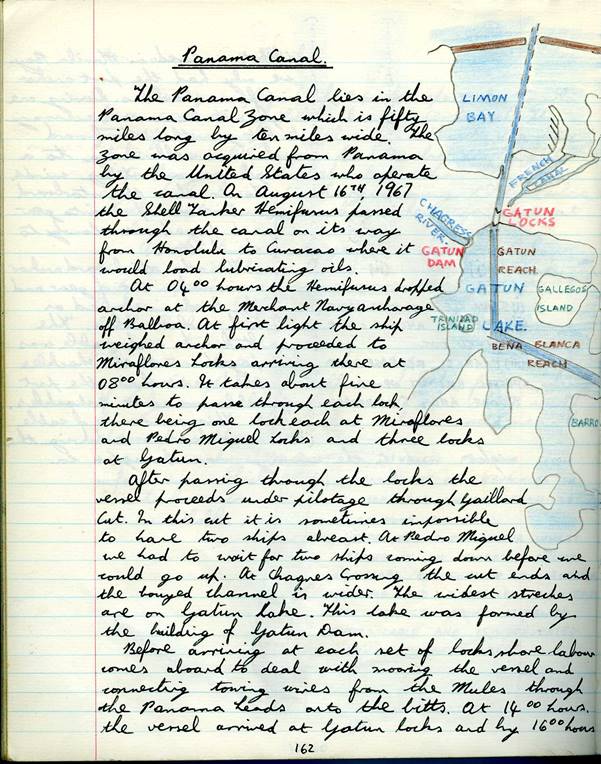 Panama Canal.
The Panama Canal lies in the
Panama Canal Zone which is fifty
miles long by ten miles wide. The
zone was acquired from Panama
by the United States who operate
the canal. On August 16TH, 1967
the Shell Tanker Hemifusus passed
through the canal on its way
from Honolulu to Curacao where it
would load lubricating oils.
At 0400 hours the Hemifusus dropped
anchor at the Merchant Navy anchorage
off Balboa. At first light the ship
weighed anchor and proceeded to
Miraflores Locks arriving there at
0800 hours. It takes about five
minutes to pass through each lock,
there being one lock each at Miraflores
and Pedro Miguel Locks and three locks
at Gatun.
After passing through the locks the
vessel proceeds under pilotage through Gaillard
Cut. In this cut it is sometimes impossible
to have two ships abreast. At Pedro Miguel
we had to wait for two ships coming down before we
could go up. At Chagres Crossing the cut ends and
the bouyed channel is wider. The widest streches
are on Gatun Lake. This lake was formed by
the building of Gatun Dam.
Before arriving at each set of locks shore labour
comes aboard to deal with mooring the vessel and
connecting towing wires from the Mules through
the Panama Leads onto the bitts. At 1400 hours.
the vessel arrived at Gatun locks and by 1600 hours
162
LIMON
BAY
FRENCH
CANAL
CHAGRESS
RIVER.
GATUN
LOCKS
GATUN
DAM
GATUN
REACH.
GATUN
LAKE.
GALLEGOS
ISLAND
TRINIDAD
ISLAND
BENA BLANCA
REACH
BARRO